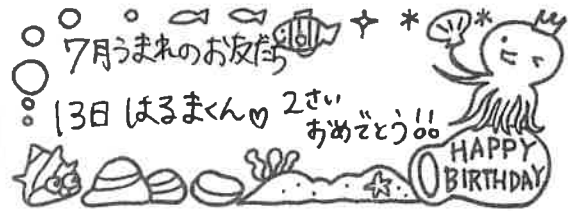 7月うまれのお友だち
13日 はるまくん♡ 2さい
おめでとう!!
HAPPY
BIRTHDAY